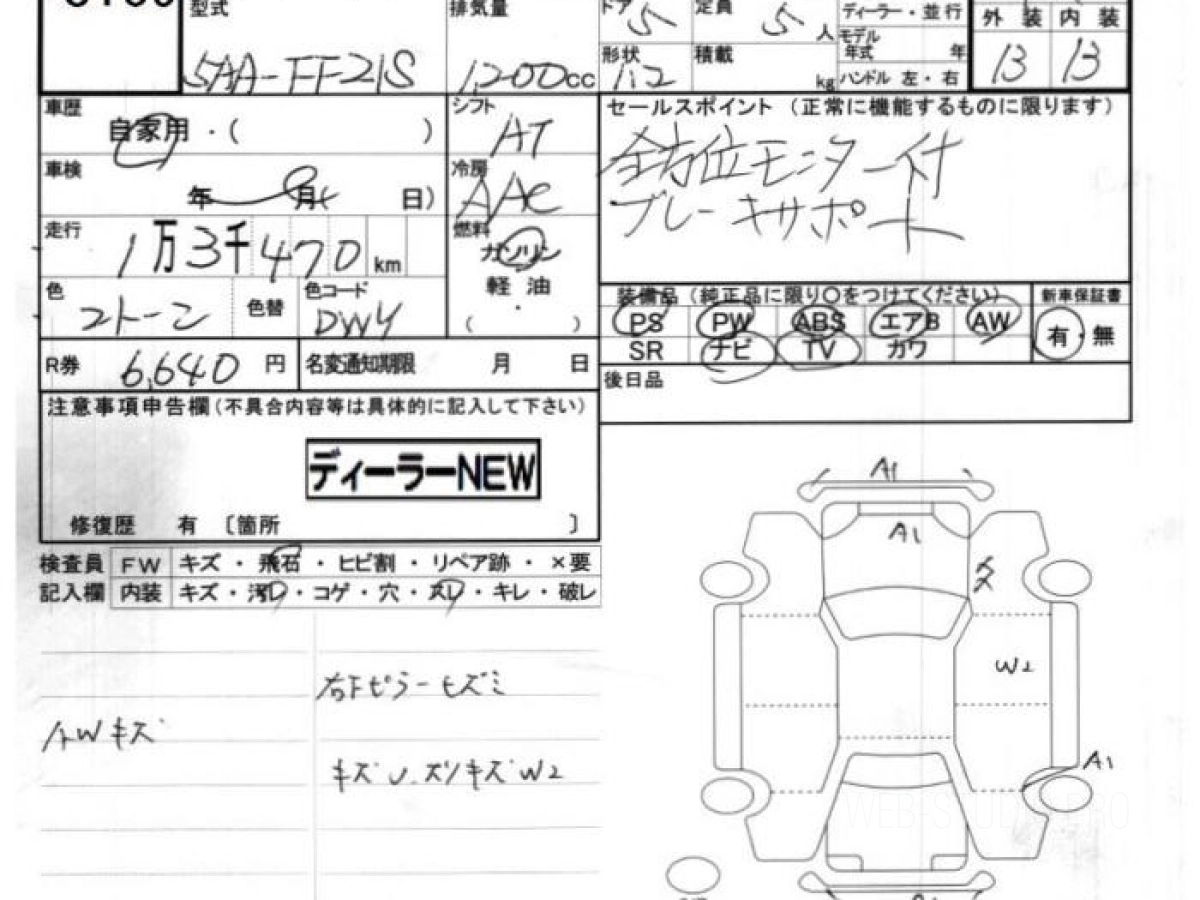 型式 排気量 ドア 5 定員 5 人 ディーラー・並行 外装 内装
5AA-FF21S 1,200cc 形状 積載 kg モデル年式 年 ハンドル 左・右 13 13
車歴 自家用・( ) シフト AT セールスポイント（正常に機能するものに限ります）
車検 年 月( 日) 冷房 AAC 全方位モニター付
走行 1万3千470km 燃料 ガソリン ブレーキサポート
軽油
・
( )
色 2トーン 色替 色コード DWY
装備品（純正品に限り○をつけてください） 新車保証書
PS PW ABS エアB AW 有・無
SR ナビ TV カワ
R券 6,640円 名変通知期限 月 日 後日品
注意事項申告欄(不具合内容等は具体的に記入して下さい)
ディーラーNEW
修復歴 有 〔箇所 〕
検査員 FW キズ・飛石・ヒビ割・リペア跡・×要
記入欄 内装 キズ・汚レ・コゲ・穴・スレ・キレ・破レ
AWキズ
キズ W2
A1
A1
W2
A1
WEB-STUDIO.PRO